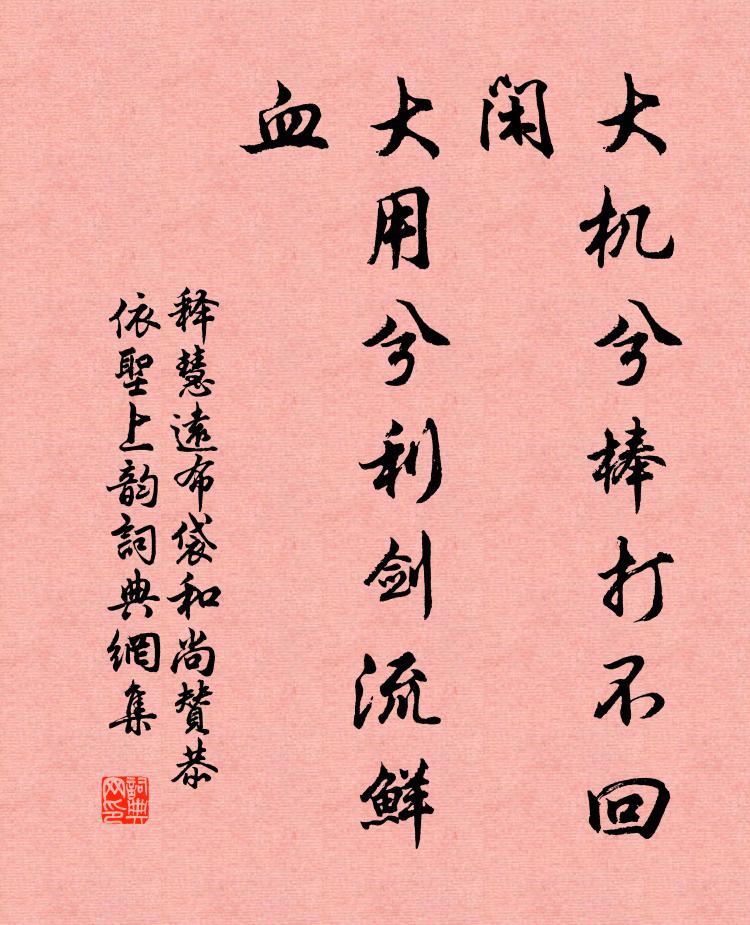 大机兮棒打不回
闲
大用兮利剑流鲜
血
释慧遠布袋和尚赞恭
依聖上韵詞典網集
詞典
网印